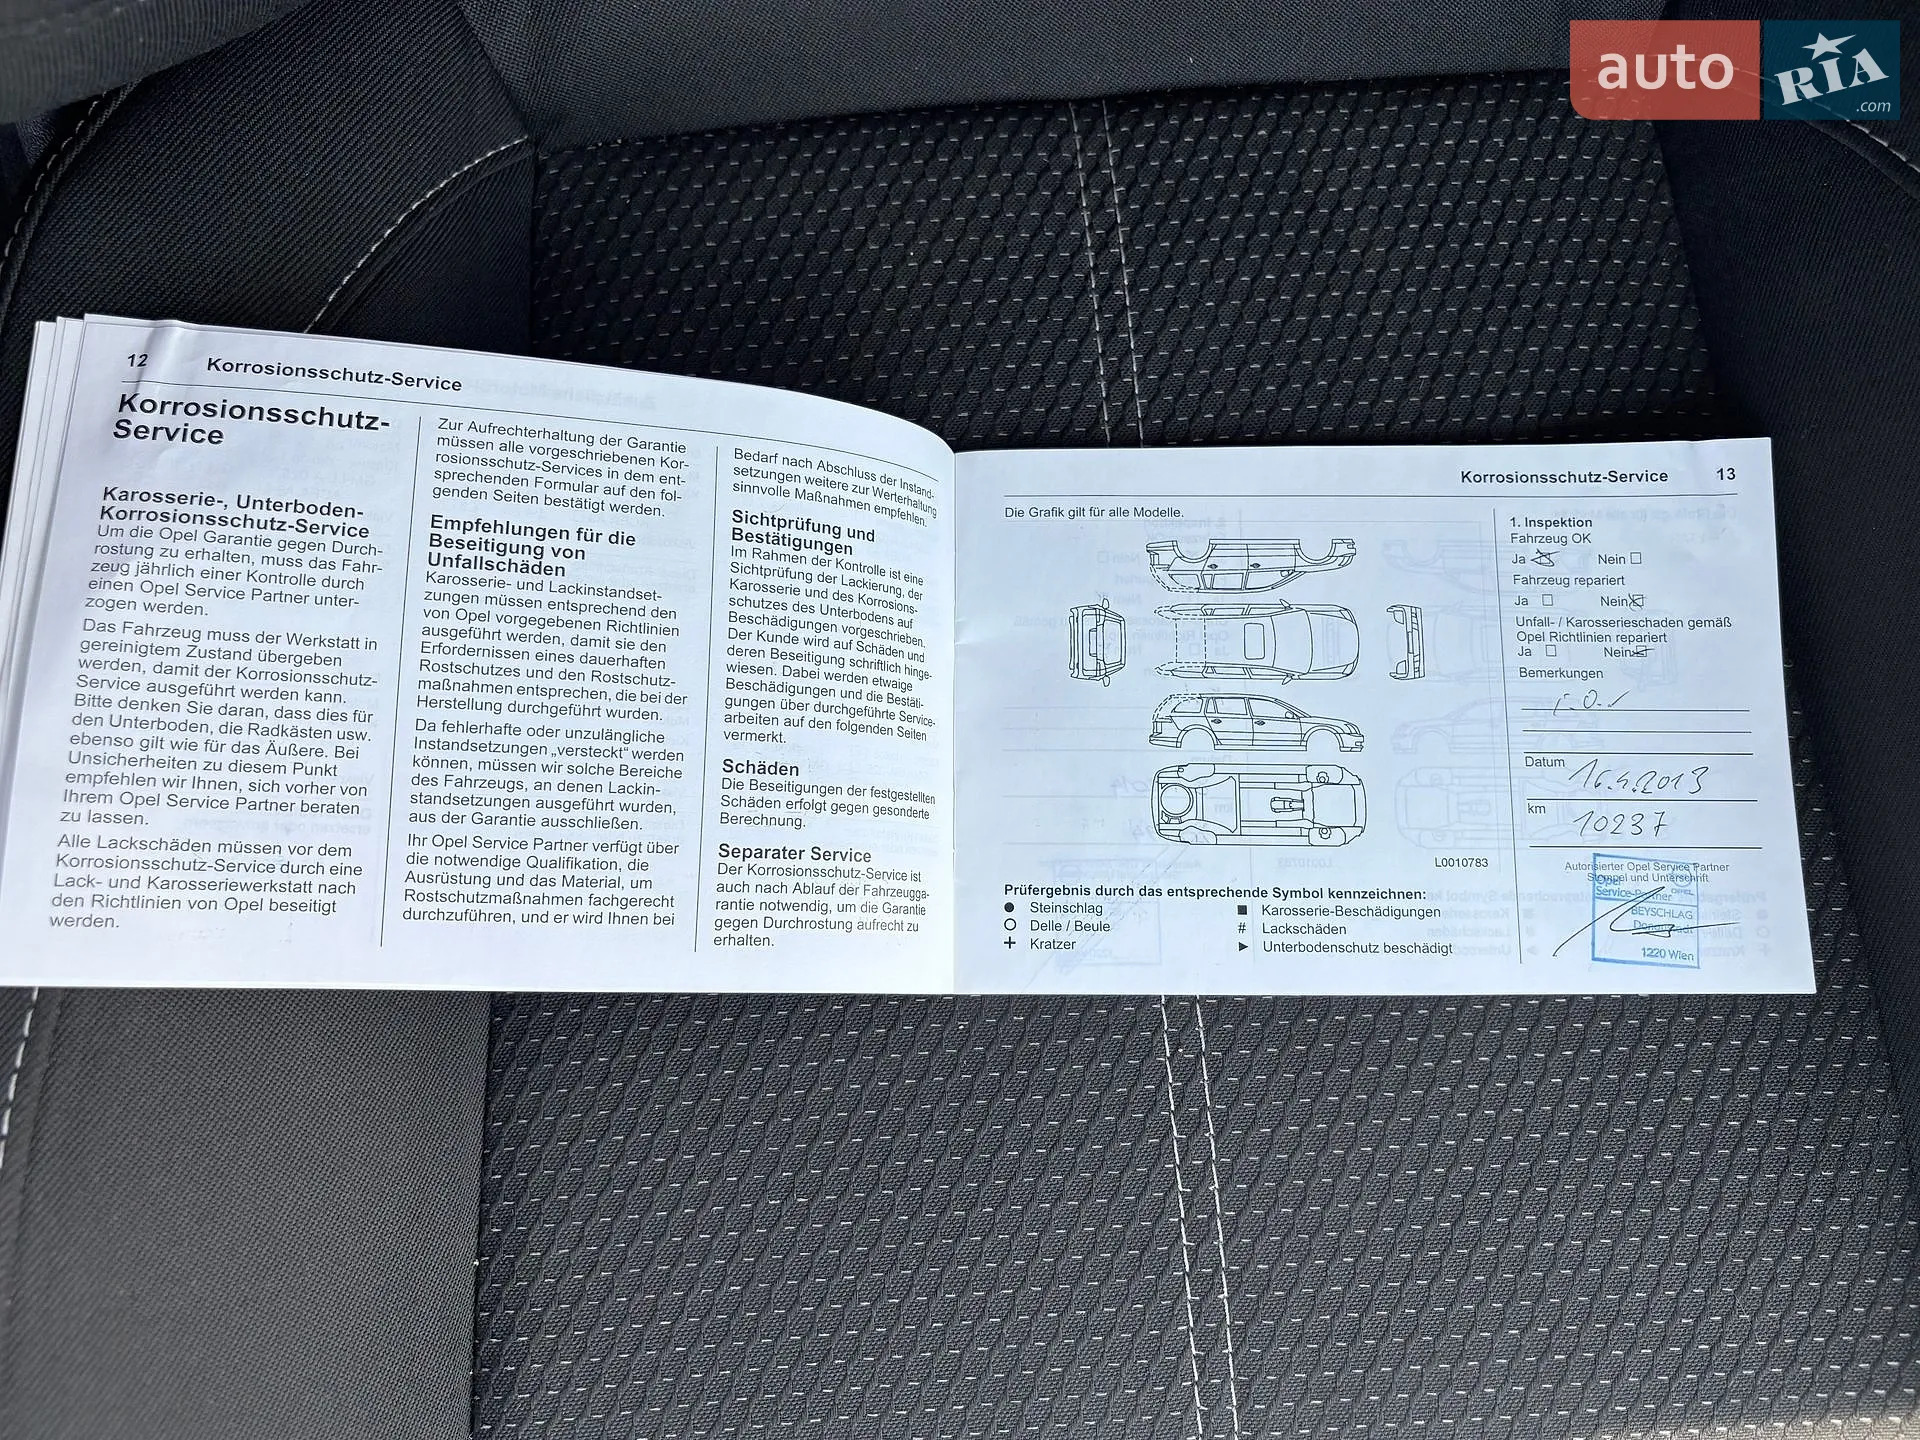 auto RIA.com
12 Korrosionsschutz-Service
Korrosionsschutz-
Service
Karosserie-, Unterboden-
Korrosionsschutz-Service
Um die Opel Garantie gegen Durch-
rostung zu erhalten, muss das Fahr-
zeug jährlich einer Kontrolle durch
einen Opel Service Partner unter-
zogen werden.
Das Fahrzeug muss der Werkstatt in
gereinigtem Zustand übergeben
werden, damit der Korrosionsschutz-
Service ausgeführt werden kann.
Bitte denken Sie daran, dass dies für
den Unterboden, die Radkästen usw.
ebenso gilt wie für das Äußere. Bei
Unsicherheiten zu diesem Punkt
empfehlen wir Ihnen, sich vorher von
Ihrem Opel Service Partner beraten
zu lassen.
Alle Lackschäden müssen vor dem
Korrosionsschutz-Service durch eine
Lack- und Karosseriewerkstatt nach
den Richtlinien von Opel beseitigt
werden.
Zur Aufrechterhaltung der Garantie
müssen alle vorgeschriebenen Kor-
rosionsschutz-Services in dem ent-
sprechenden Formular auf den fol-
genden Seiten bestätigt werden.
Empfehlungen für die
Beseitigung von
Unfallschäden
Karosserie- und Lackinstandset-
zungen müssen entsprechend den
von Opel vorgegebenen Richtlinien
ausgeführt werden, damit sie den
Erfordernissen eines dauerhaften
Rostschutzes und den Rostschutz-
maßnahmen entsprechen, die bei der
Herstellung durchgeführt wurden.
Da fehlerhafte oder unzulängliche
Instandsetzungen „versteckt“ werden
können, müssen wir solche Bereiche
des Fahrzeugs, an denen Lackin-
standsetzungen ausgeführt wurden,
aus der Garantie ausschließen.
Ihr Opel Service Partner verfügt über
die notwendige Qualifikation, die
Ausrüstung und das Material, um
Rostschutzmaßnahmen fachgerecht
durchzuführen, und er wird Ihnen bei
Bedarf nach Abschluss der Instand-
setzungen weitere zur Werterhaltung
sinnvolle Maßnahmen empfehlen.
Sichtprüfung und
Bestätigungen
Im Rahmen der Kontrolle ist eine
Sichtprüfung der Lackierung, der
Karosserie und des Korrosions-
schutzes des Unterbodens auf
Beschädigungen vorgeschrieben.
Der Kunde wird auf Schäden und
deren Beseitigung schriftlich hinge-
wiesen. Dabei werden etwaige
Beschädigungen und die Bestäti-
gungen über durchgeführte Service-
arbeiten auf den folgenden Seiten
vermerkt.
Schäden
Die Beseitigungen der festgestellten
Schäden erfolgt gegen gesonderte
Berechnung.
Separater Service
Der Korrosionsschutz-Service ist
auch nach Ablauf der Fahrzeugga-
rantie notwendig, um die Garantie
gegen Durchrostung aufrecht zu
erhalten.
Korrosionsschutz-Service 13
Die Grafik gilt für alle Modelle.
L0010783
Prüfergebnis durch das entsprechende Symbol kennzeichnen:
Steinschlag
Delle / Beule
+ Kratzer
Karosserie-Beschädigungen
# Lackschäden
Unterbodenschutz beschädigt
1. Inspektion
Fahrzeug OK
Ja Nein
Fahrzeug repariert
Ja Nein
Unfall- / Karosserieschaden gemäß
Opel Richtlinien repariert
Ja Nein
Bemerkungen
i.O.
Datum 16.4.2013
km 10237
Autorisierter Opel Service Partner
Stempel und Unterschrift
Opel
Service-Partner OPEL
BEYSCHLAG
Donaustadt
1220 Wien